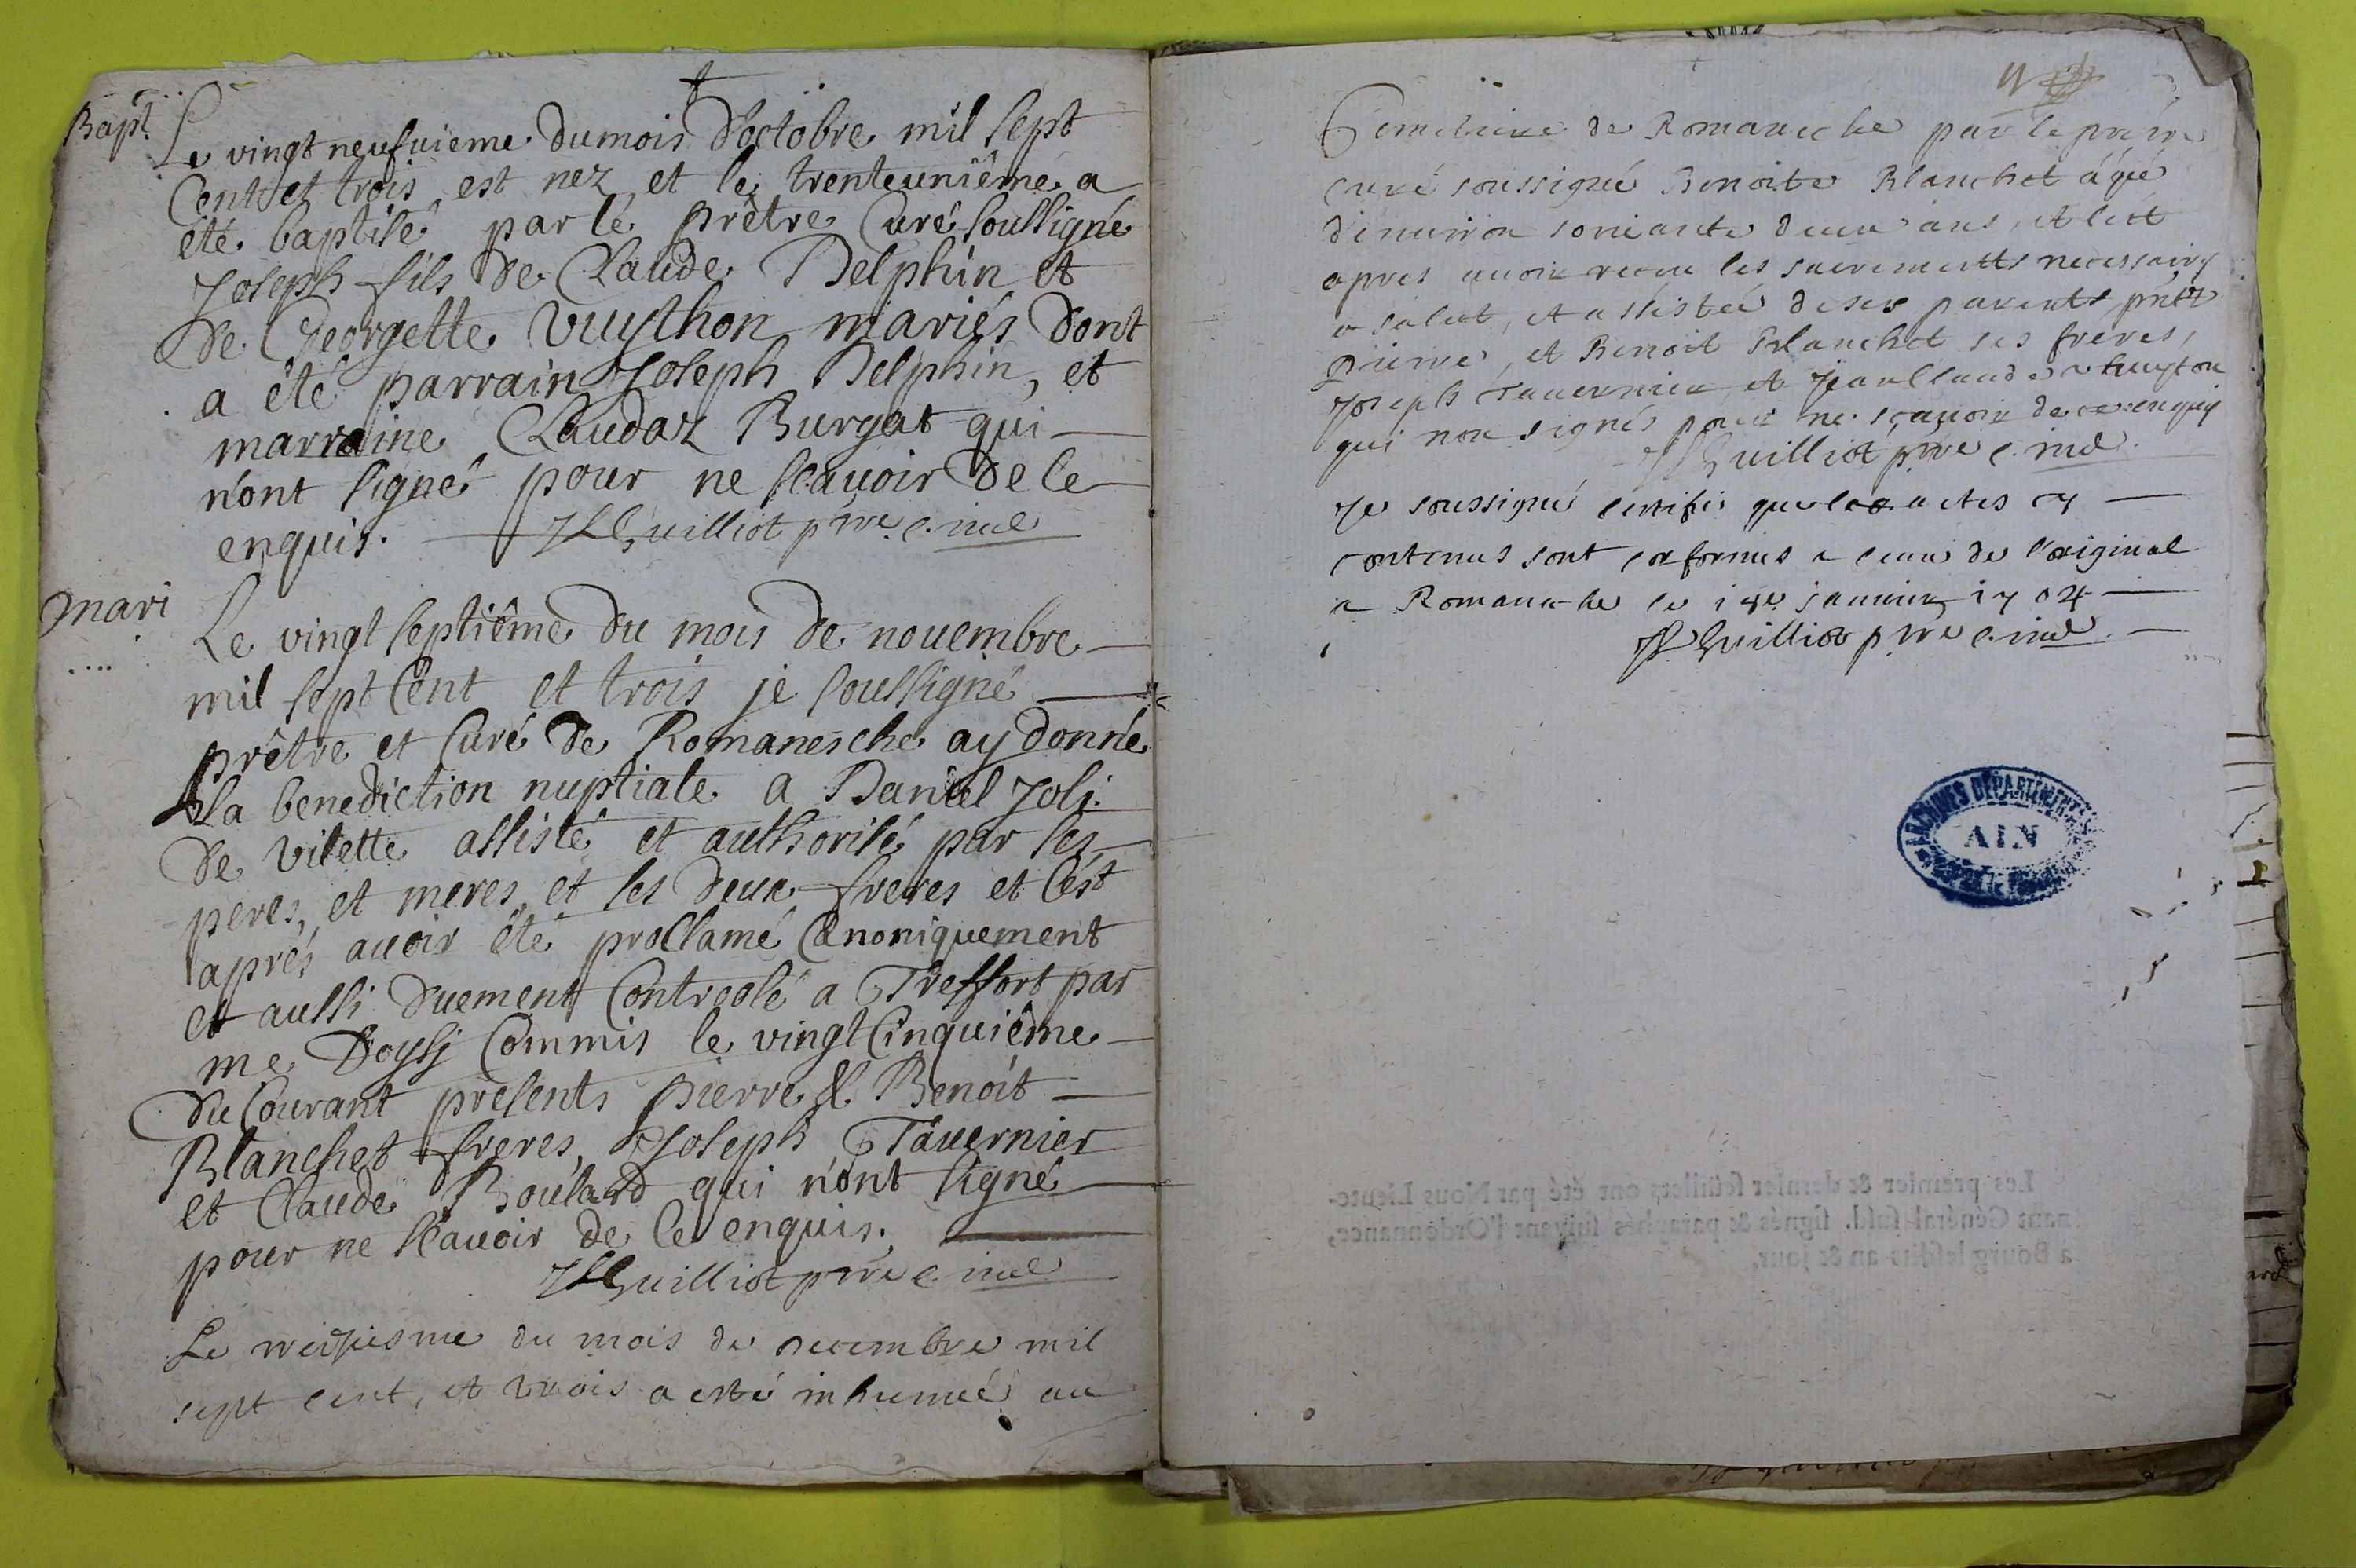 Bapt.
Le vingt neufuieme du mois d'octobre mil sept
Cent et trois est nez et le trenteunième a
été baptisé par le prêtre Curé soussigné
Joseph fils de Claude Delphin et
de Georgette Vuython mariés dont
a été parrain Joseph Delphin, et
marraine Claudaz Burgat qui
n'ont signé pour ne scauoir de ce
enquis. JLGuilliot p
mari
Le vingt septième du mois de nouembre
mil sept Cent et trois je soussigné
prêtre et Curé de Romanesche ay donné
la benediction nuptiale a Daniel Joli
de vilette assisté et authorisé par ses
peres, et meres, et ses deux freres et C'ést
aprés auoir été proclamé Canoniquement
et aussi duement Controolé a Treffort par
me Doysj Commis le vingt Cinquième
du Courant présents pierre & Benoit
Blanchet freres, Joseph Tauernier
et Claude Boulard qui n'ont signé
pour ne scauoir de Ce enquis.
JLGuilliot p
Le du mois de decembre mil
sept cent, et trois a esté inhumée au
Cimetiere de Romanesche par le prêtre
curé soussigné Benoite Blanchet ãgée
d'enuiron soixante deux ans, et c'est
apres auoir receu les sacrements necessaires
a salut, et assistée de ses parents
pierre, et Benoit Blanchet ses freres,
Joseph Tauernier et Jean Claude Vuyton
qui non signés pour ne sçauoir de ce enquis
JLGuilliot p
Je soussigné certifie que les actes cy
contenus sont conformes a ceux de l'original
a Romanesche le janvier 1704
JLGuilliot p
ARCHIVES DÉPARTEMENTALES
AIN
Les premier & dernier feüillets ont été par Nous Lieute-
nant Général susd. signés & paraphés suivant l'Ordonnance,
à Bourg lesdits an & jour.